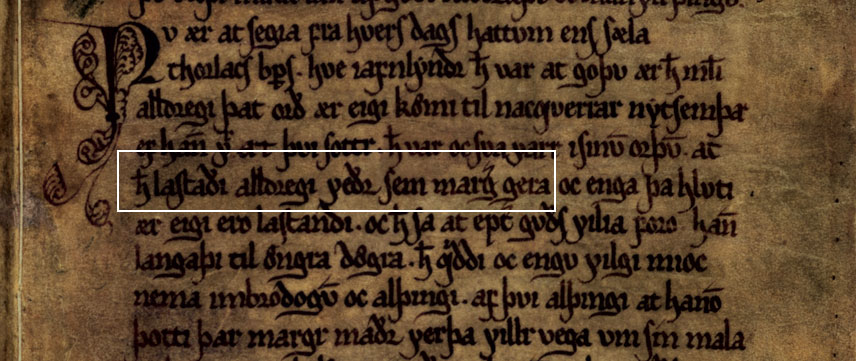 Nv ær at segia fra hvers dags hattvm ens sæla
thorlacs bps. hve iafnlyndr ħ var at goþv ær ħ mlti
alldregi þat orð ær eigi kømi til nacqverrar nytsemþar
ħ var oc sva varr i sinv̄ orþv̄. at
ħ lastaði alldregi veðr sem marg̓ gera oc enga þa hlvti
ær eigi ero lastandi. oc ħ sa at ept̓ gvðs vilia foro han̄
langaþi til øngra døgra. ħ qvddi oc engv vilgi mioc
nema imbrodogv̄ oc alþingi. af þvi alþingi at hanō
þotti þar margr maðr verþa villr vega vm sin mala